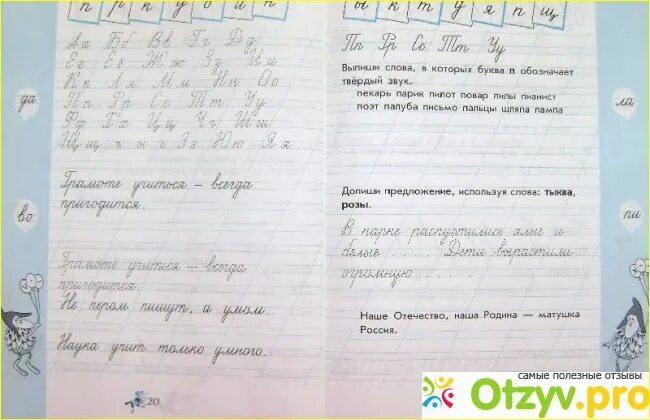 п р к у
Аа Бб Вв Гг Дд
Ее Ёё Жж Зз Ии
Кк Лл Мм Нн Оо
Пп Рр Сс Тт Уу
Фф Хх Цц Чч Шш
Щщ ъ ы ь Ээ Юю Яя
да
Грамоте учиться – всегда
пригодится.
во
Грамоте учиться – всегда
пригодится.
Не пером пишут, а умом.
Наука учит только умного.
20
ы к т д я п щ
Пп Рр Сс Тт Уу
Выпиши слова, в которых буква п обозначает
твёрдый звук.
пекарь парик пилот повар пилы пианист
поэт палуба письмо пальцы шляпа лампа
ла
Допиши предложение, используя слова: тыква,
розы.
В парке распустились алые и
белые .... Дети вырастили
огромную ....
пи
Наше Отечество, наша Родина — матушка
Россия.
самые полезные отзывы
Otzyv.pro